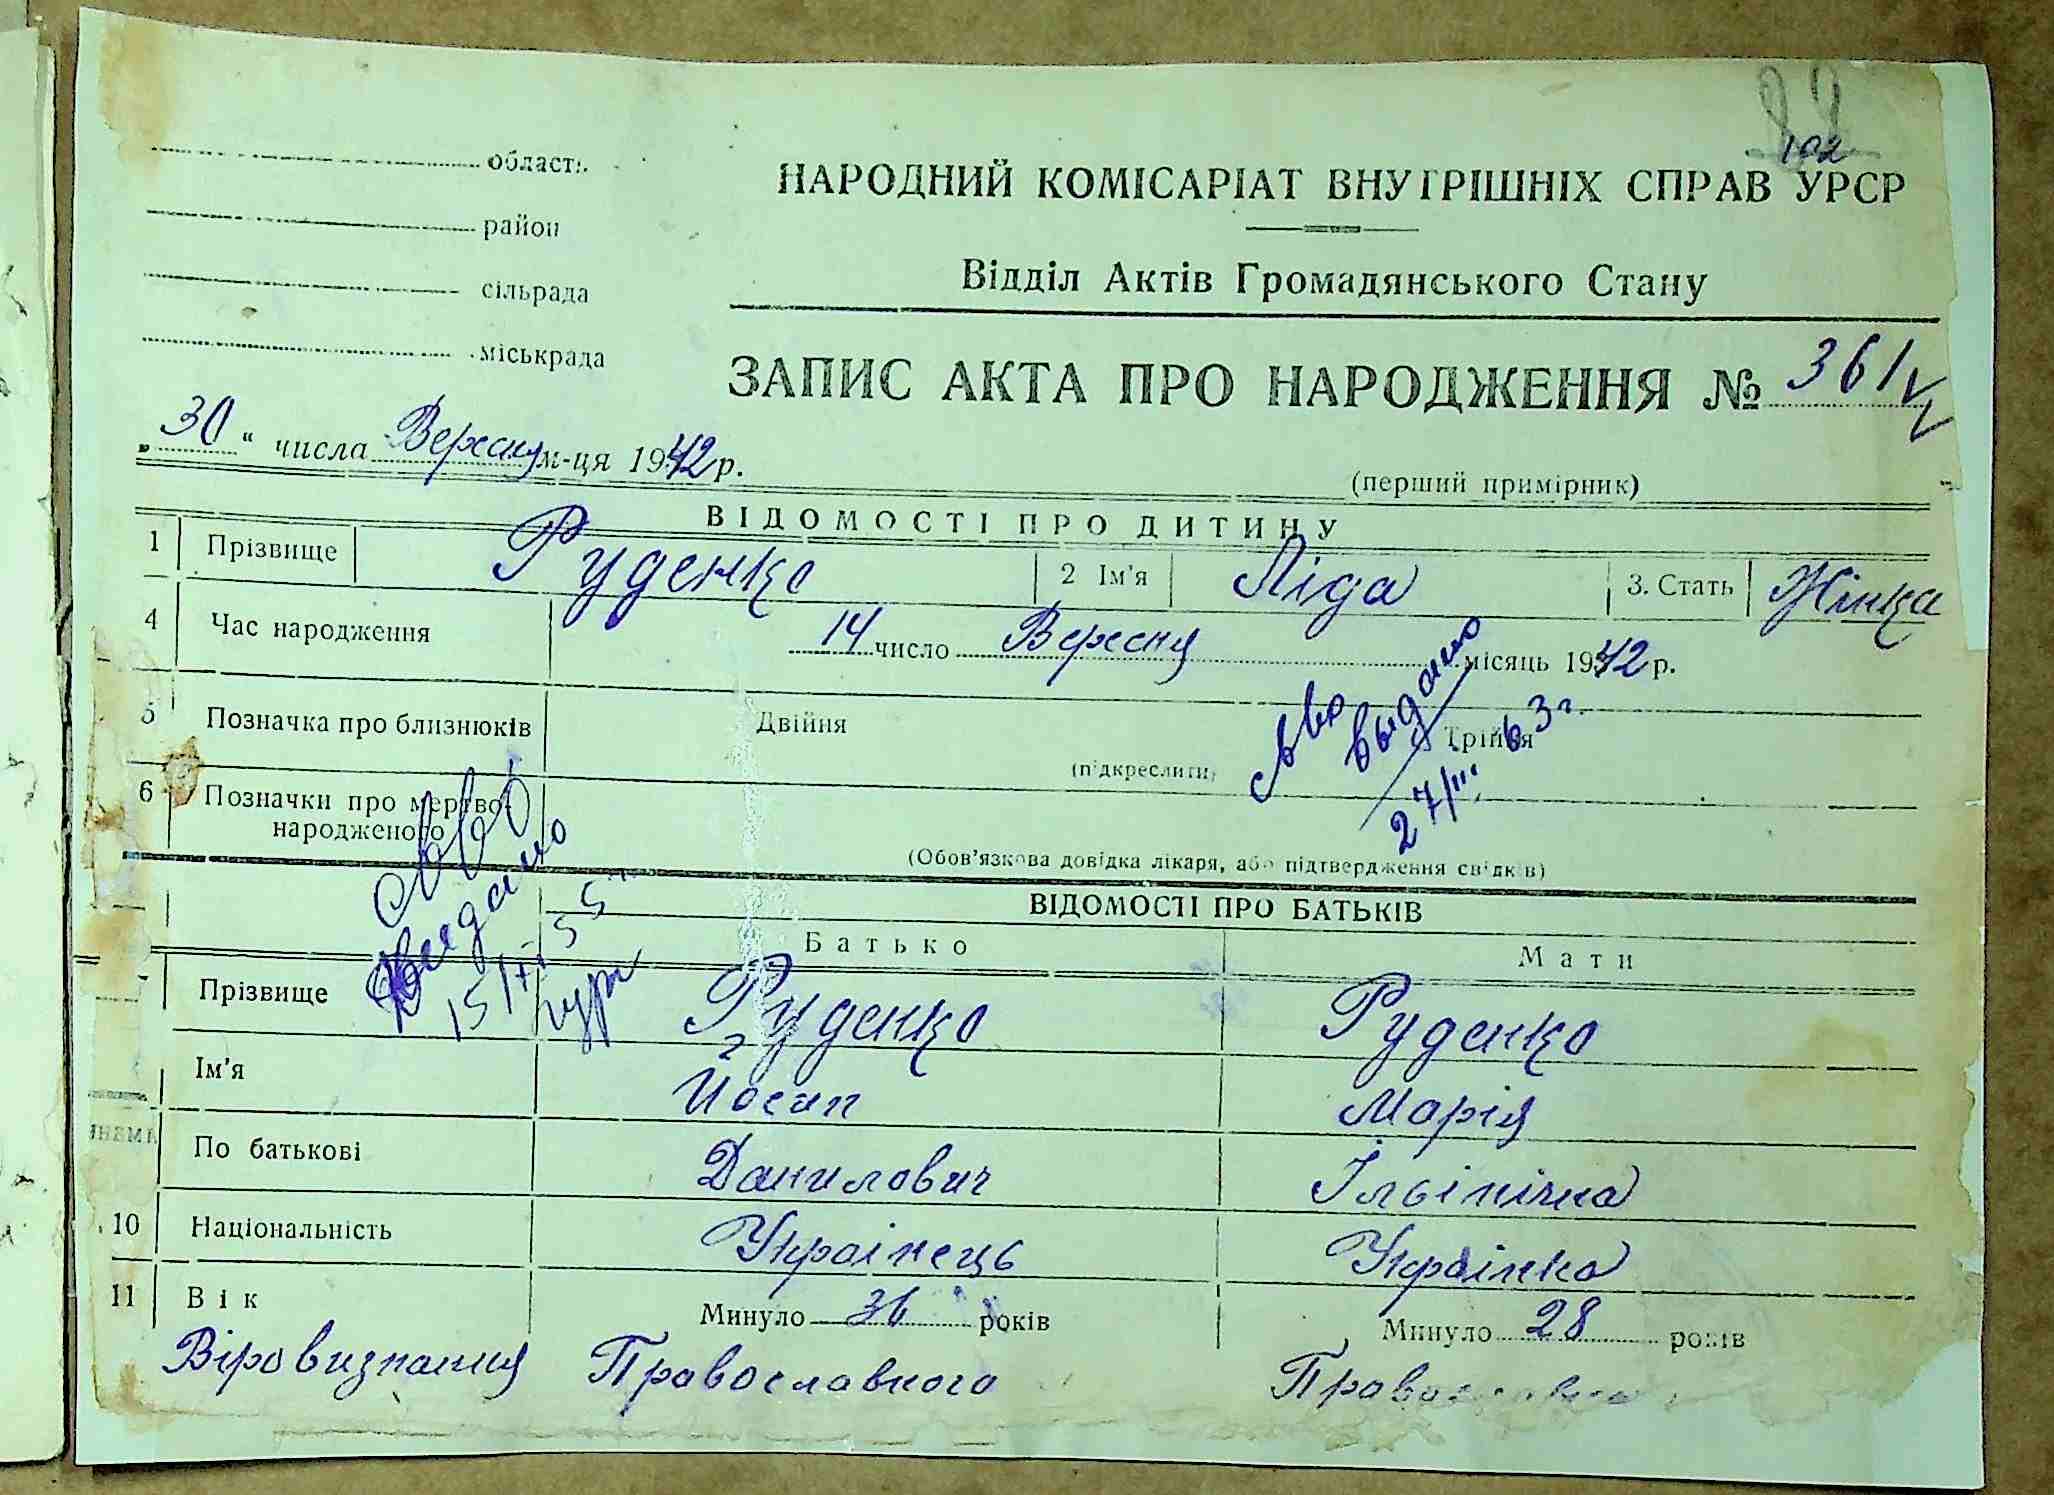 102
області.
район
сільрада
міськрада
НАРОДНИЙ КОМІСАРІАТ ВНУТРІШНІХ СПРАВ УРСР
Відділ Актів Громадянського Стану
ЗАПИС АКТА ПРО НАРОДЖЕННЯ № 361
„30“ числа Вересня м-ця 1942 р.
(перший примірник)
ВІДОМОСТІ ПРО ДИТИНУ
1 Прізвище Руденко 2 Ім'я Ліда 3. Стать Жінка
4 Час народження 14 число Вересня місяць 1942 р.
5 Позначка про близнюків Двійня Трійня
(підкреслити)
выдано
27/III 63 г.
6 Позначки про мертво-
народженого
(Обов'язкова довідка лікаря, або підтвердження свідків)
выдано
ВІДОМОСТІ ПРО БАТЬКІВ
Батько Мати
Прізвище Руденко Руденко
Ім'я Йосип Марія
По батькові Данилович Ільінічна
10 Національність Українець Українка
11 Вік Минуло 36 років Минуло 28 років
Віровизнання Православного